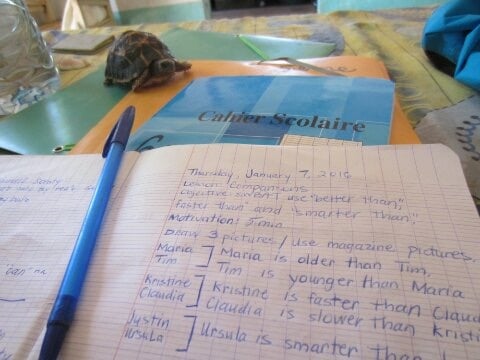 Cahier Scolaire
Thursday, January 7, 2016
Lesson: Comparisons
Objective: SWBAT use "better than",
"faster than" and "smarter than".
Motivation: 5min
Draw 3 pictures / use magazine pictures.
Maria ] Maria is older than Tim.
Tim ] Tim is younger than Maria
Kristine ] Kristine is faster than Claud
Claudia ] Claudia is slower than Kristin
Justin
Ursula ] Ursula is smarter than